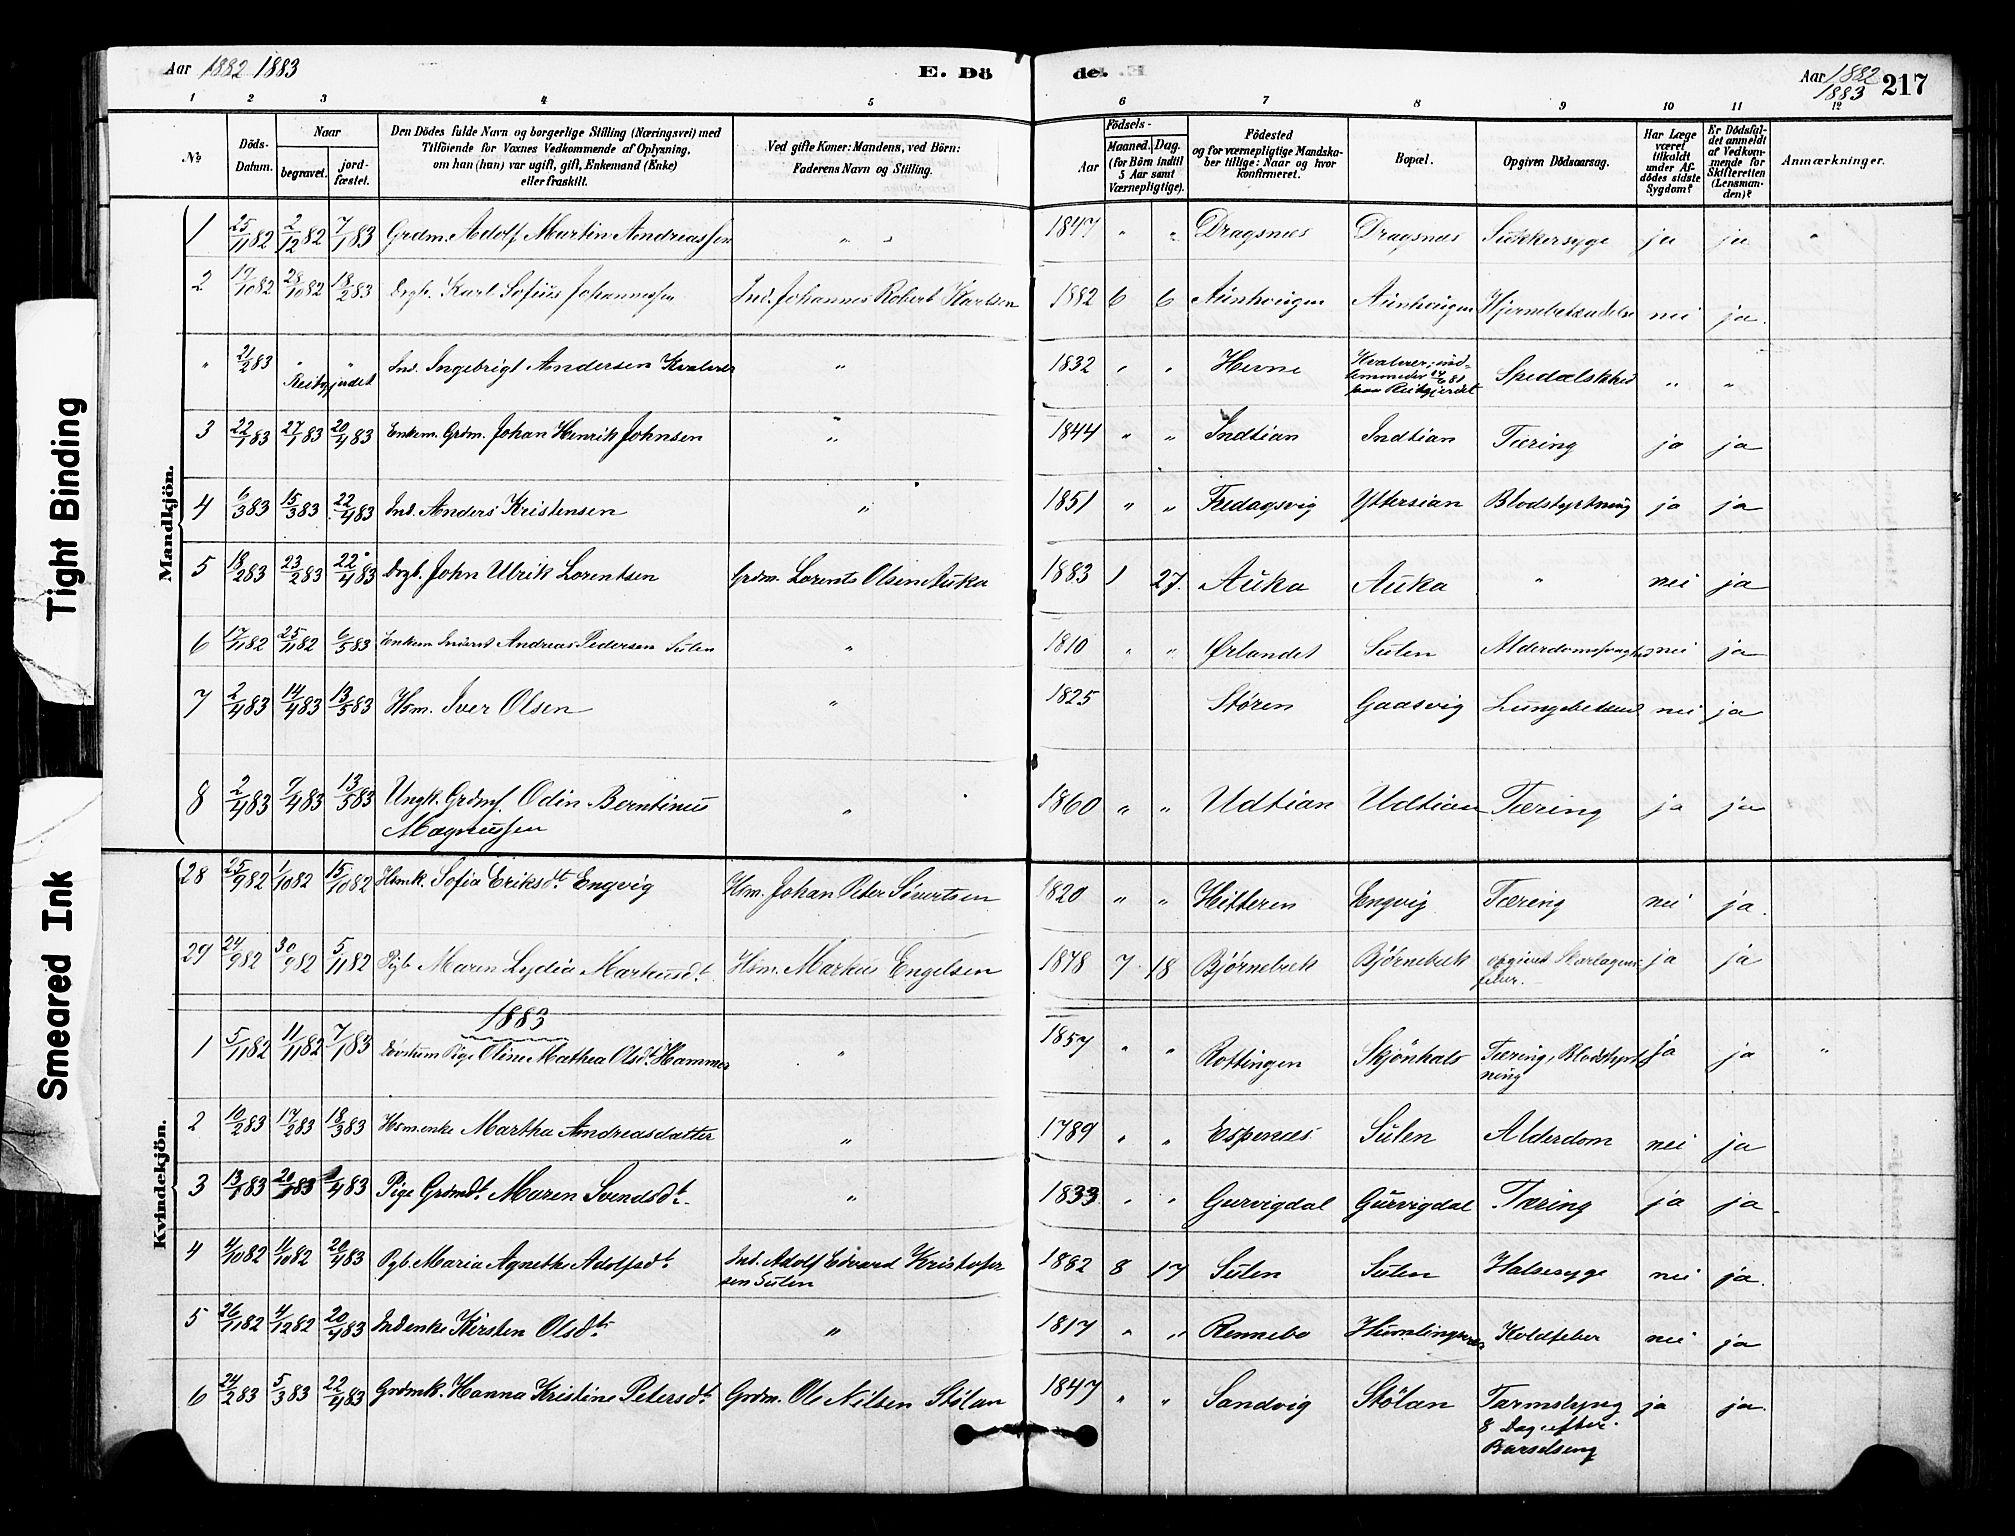 Aar 1882 1883
E. Dö
de.
Aar 1882
1883
217
1 2 3 4 5 6 7 8 9 10 11 12
No
Döds-
Datum.
Naar
begravet.
jord-
fæstet.
Den Dödes fulde Navn og borgerlige Stilling (Næringsvei) med
Tilföiende for Voxnes Vedkommende af Oplysning,
om han (hun) var ugift, gift, Enkemand (Enke)
eller fraskilt.
Ved gifte Koner: Mandens, ved Börn:
Faderens Navn og Stilling.
Födsels-
Aar
Maaned. Dag.
(for Börn indtil
5 Aar samt
Værnepligtige).
Födested
og for værnepligtige Mandska-
ber tillige: Naar og hvor
konfirmeret.
Bopæl.
Opgiven Dödsaarsag.
Har Læge
været
tilkaldt
under Af-
dödes sidste
Sygdom?
Er Dödsfal-
det anmeldt
af Vedkom-
mende for
Skifteretten
(Lensman-
den)?
Anmærkninger.
Mandkjön.
1 25/11 82 2/12 82 7/1 83 Grdm. Adolf Martin Andreassen " " 1847 " " Dragsnæs Dragsnæs Sukkersyge ja ja "
2 17/10 82 28/10 82 18/2 83 Drgb. Karl Sofius Johannessen Ind. Johannes Robert Karlsen 1882 6 6 Aunhougen Aunhougen Hjernebetændelse nei ja.
" 21/2 83 " " Ind. Ingebrigt Andersen Kvalvær " 1832 " " Hevne Kvalvær; ind-
Reitgjerdet
lemmedes 17/6 81
paa Reitgjerdet
Spedalskhed " "
3 22/1 83 27/1 83 20/4 83 Enkem. Grdm. Johan Henrik Johnsen " 1844 " " Indtian Indtian Tæring ja ja
4 6/3 83 15/3 83 22/4 83 Ind. Anders Kristensen " 1851 " " Fredagsvig Yttersian Blodstyrtning ja ja
5 18/2 83 23/2 83 22/4 83 Drgb. John Ulrik Lorentsen Grdm. Lorents Olsen Auka 1883 1 27. Auka Auka " nei ja
6 17/11 82 25/11 82 6/5 83 Enkem Inderst Andreas Pedersen Sulen " 1810 " " Ørlandet Sulen nei ja
7 2/4 83 14/4 83 13/5 83 Hsm. Iver Olsen " 1825 Støren Gaasvig Lungebetænd nei ja
8 2/4 83 9/4 83 13/5 83 Ungk. Grdms. Odin Berntinus
Magnussen
" 1860 " " Udtian Udtian Tæring ja ja
Kvindekjön.
28 25/9 82 1/10 82 15/10 82 Hsmk. Sofia Eriksdt Engvig Hsm. Johan Peter Sivertsen 1820 " " Hitteren Engvig Tæring nei ja.
29 24/9 82 30/9 82 5/11 82 Pigb. Maren Lydia Markusdt. Hsm. Markus Engelsen 1878 7 18 Bjørnebek Bjørnebek opgivet Skarlagens-
feber.
ja ja
1883
1 5/11 82 11/11 82 7/1 83 Pige Oline Mathea Olsdt. Hammer " 1857 " " Rottingen Skjønhals Tæring, Blodstyrt-
ning
ja ja "
2 10/2 83 17/2 83 18/3 83 Hsm.enke Martha Andreasdatter " 1789 " " Espenæs Sulen Alderdom nei ja
3 13/1 83 20/1 83 1/4 83 Pige Grdmdt. Maren Svendsdt. " 1833 " " Gurvigdal Gurvigdal Tæring ja ja.
4 4/10 82 11/10 82 20/4 83 Pgb. Maria Agnethe Adolfsdt. Ind. Adolf Edvard Kristofer-
sen Sulen
1882 8 17 Sulen Sulen Halssyge nei ja.
5 26/11 82 4/12 82 20/4 83 Indenke Kirsten Olsdt. " 1817 " " Rennebo Humlingsvær Koldfeber nei ja
6 24/2 83 5/3 83 22/4 83 Grdmk. Hanna Kristine Petersdt. Grdm. Ole Nilsen Stølan 1847 " " Sandvig Stølan Tarmslyng
8 Dage efter
Barselseng
ja ja.
Tight Binding
Smeared Ink